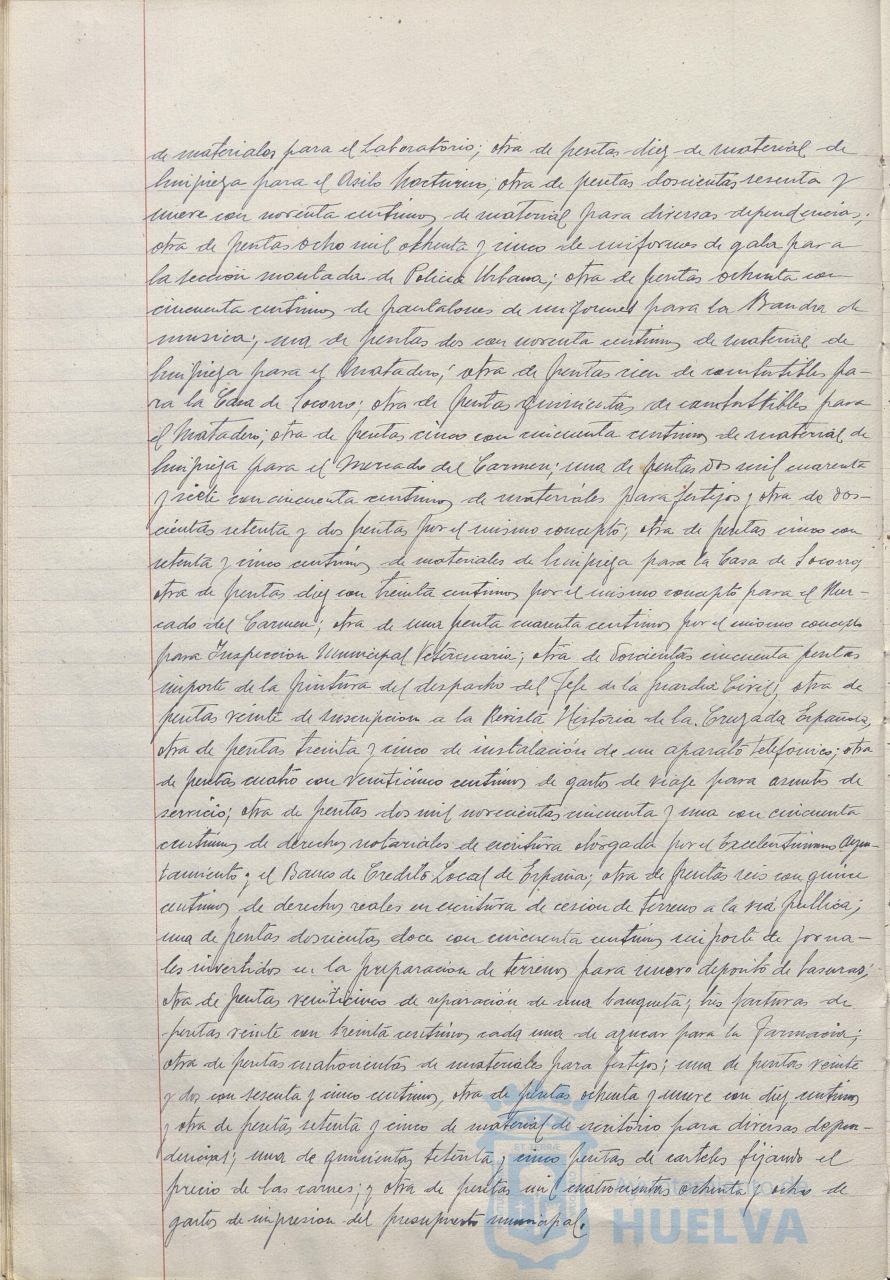 de materiales para el Laboratorio; otra de pesetas diez de material de
limpieza para el Asilo Nocturno; otra de pesetas doscientas sesenta y
nueve con noventa centimos de material para diversas dependencias;
otra de pesetas ocho mil ochenta y cinco de uniformes de gala para
la sección montada de Policia Urbana; otra de pesetas ochenta con
cincuenta centimos de pantalones de uniformes para la Banda de
musica; una de pesetas dos con noventa centimos de material de
limpieza para el Matadero; otra de pesetas cien de combustibles pa-
ra la Casa de Socorro; otra de pesetas quinientas de combustibles para
el Matadero; otra de pesetas cinco con cincuenta centimos de material de
limpieza para el Mercado del Carmen; una de pesetas dos mil cuarenta
y siete con cincuenta centimos de materiales para festejos y otra de dos-
cientas setenta y dos pesetas por el mismo concepto; otra de pesetas cinco con
setenta y cinco centimos de materiales de limpieza para la Casa de Socorro
otra de pesetas diez con treinta centimos por el mismo concepto para el Mer-
cado del Carmen; otra de una peseta cuarenta centimos por el mismo concepto
para Inspeccion Municipal Veterinaria; otra de doscientas cincuenta pesetas
importe de la pintura del despacho del Jefe de la Guardia Civil; otra de
pesetas veinte de suscripcion a la Revista Historia de la Cruzada Española,
otra de pesetas treinta y cinco de instalación de un aparato telefónico; otra
de pesetas cuatro con veinticinco centimos de gastos de viaje para asuntos de
servicio; otra de pesetas dos mil novecientas cincuenta y una con cincuenta
centimos de derechos notariales de escritura otorgada por el Excelentisimo Ayun-
tamiento y el Banco de Credito Local de España; otra de pesetas seis con quince
centimos de derechos reales en escritura de cesion de terreno a la via publica;
una de pesetas doscientas doce con cincuenta centimos importe de jorna-
les invertidos en la preparacion de terrenos para nuevo deposito de basuras;
otra de pesetas veinticinco de reparación de una banqueta; tres facturas de
pesetas veinte con treinta centimos cada una de azucar para la farmacia;
otra de pesetas cuatrocientas de materiales para festejos; una de pesetas veinte
y dos con sesenta y cinco centimos, otra de pesetas ochenta y nueve con diez centimos
y otra de pesetas setenta y cinco de material de escritorio para diversas depen-
dencias; una de quinientas setenta y cinco pesetas de carteles fijando el
precio de las carnes; y otra de pesetas mil cuatrocientas ochenta y ocho de
gastos de impresion del presupuesto municipal.
Ayuntamiento de
HUELVA